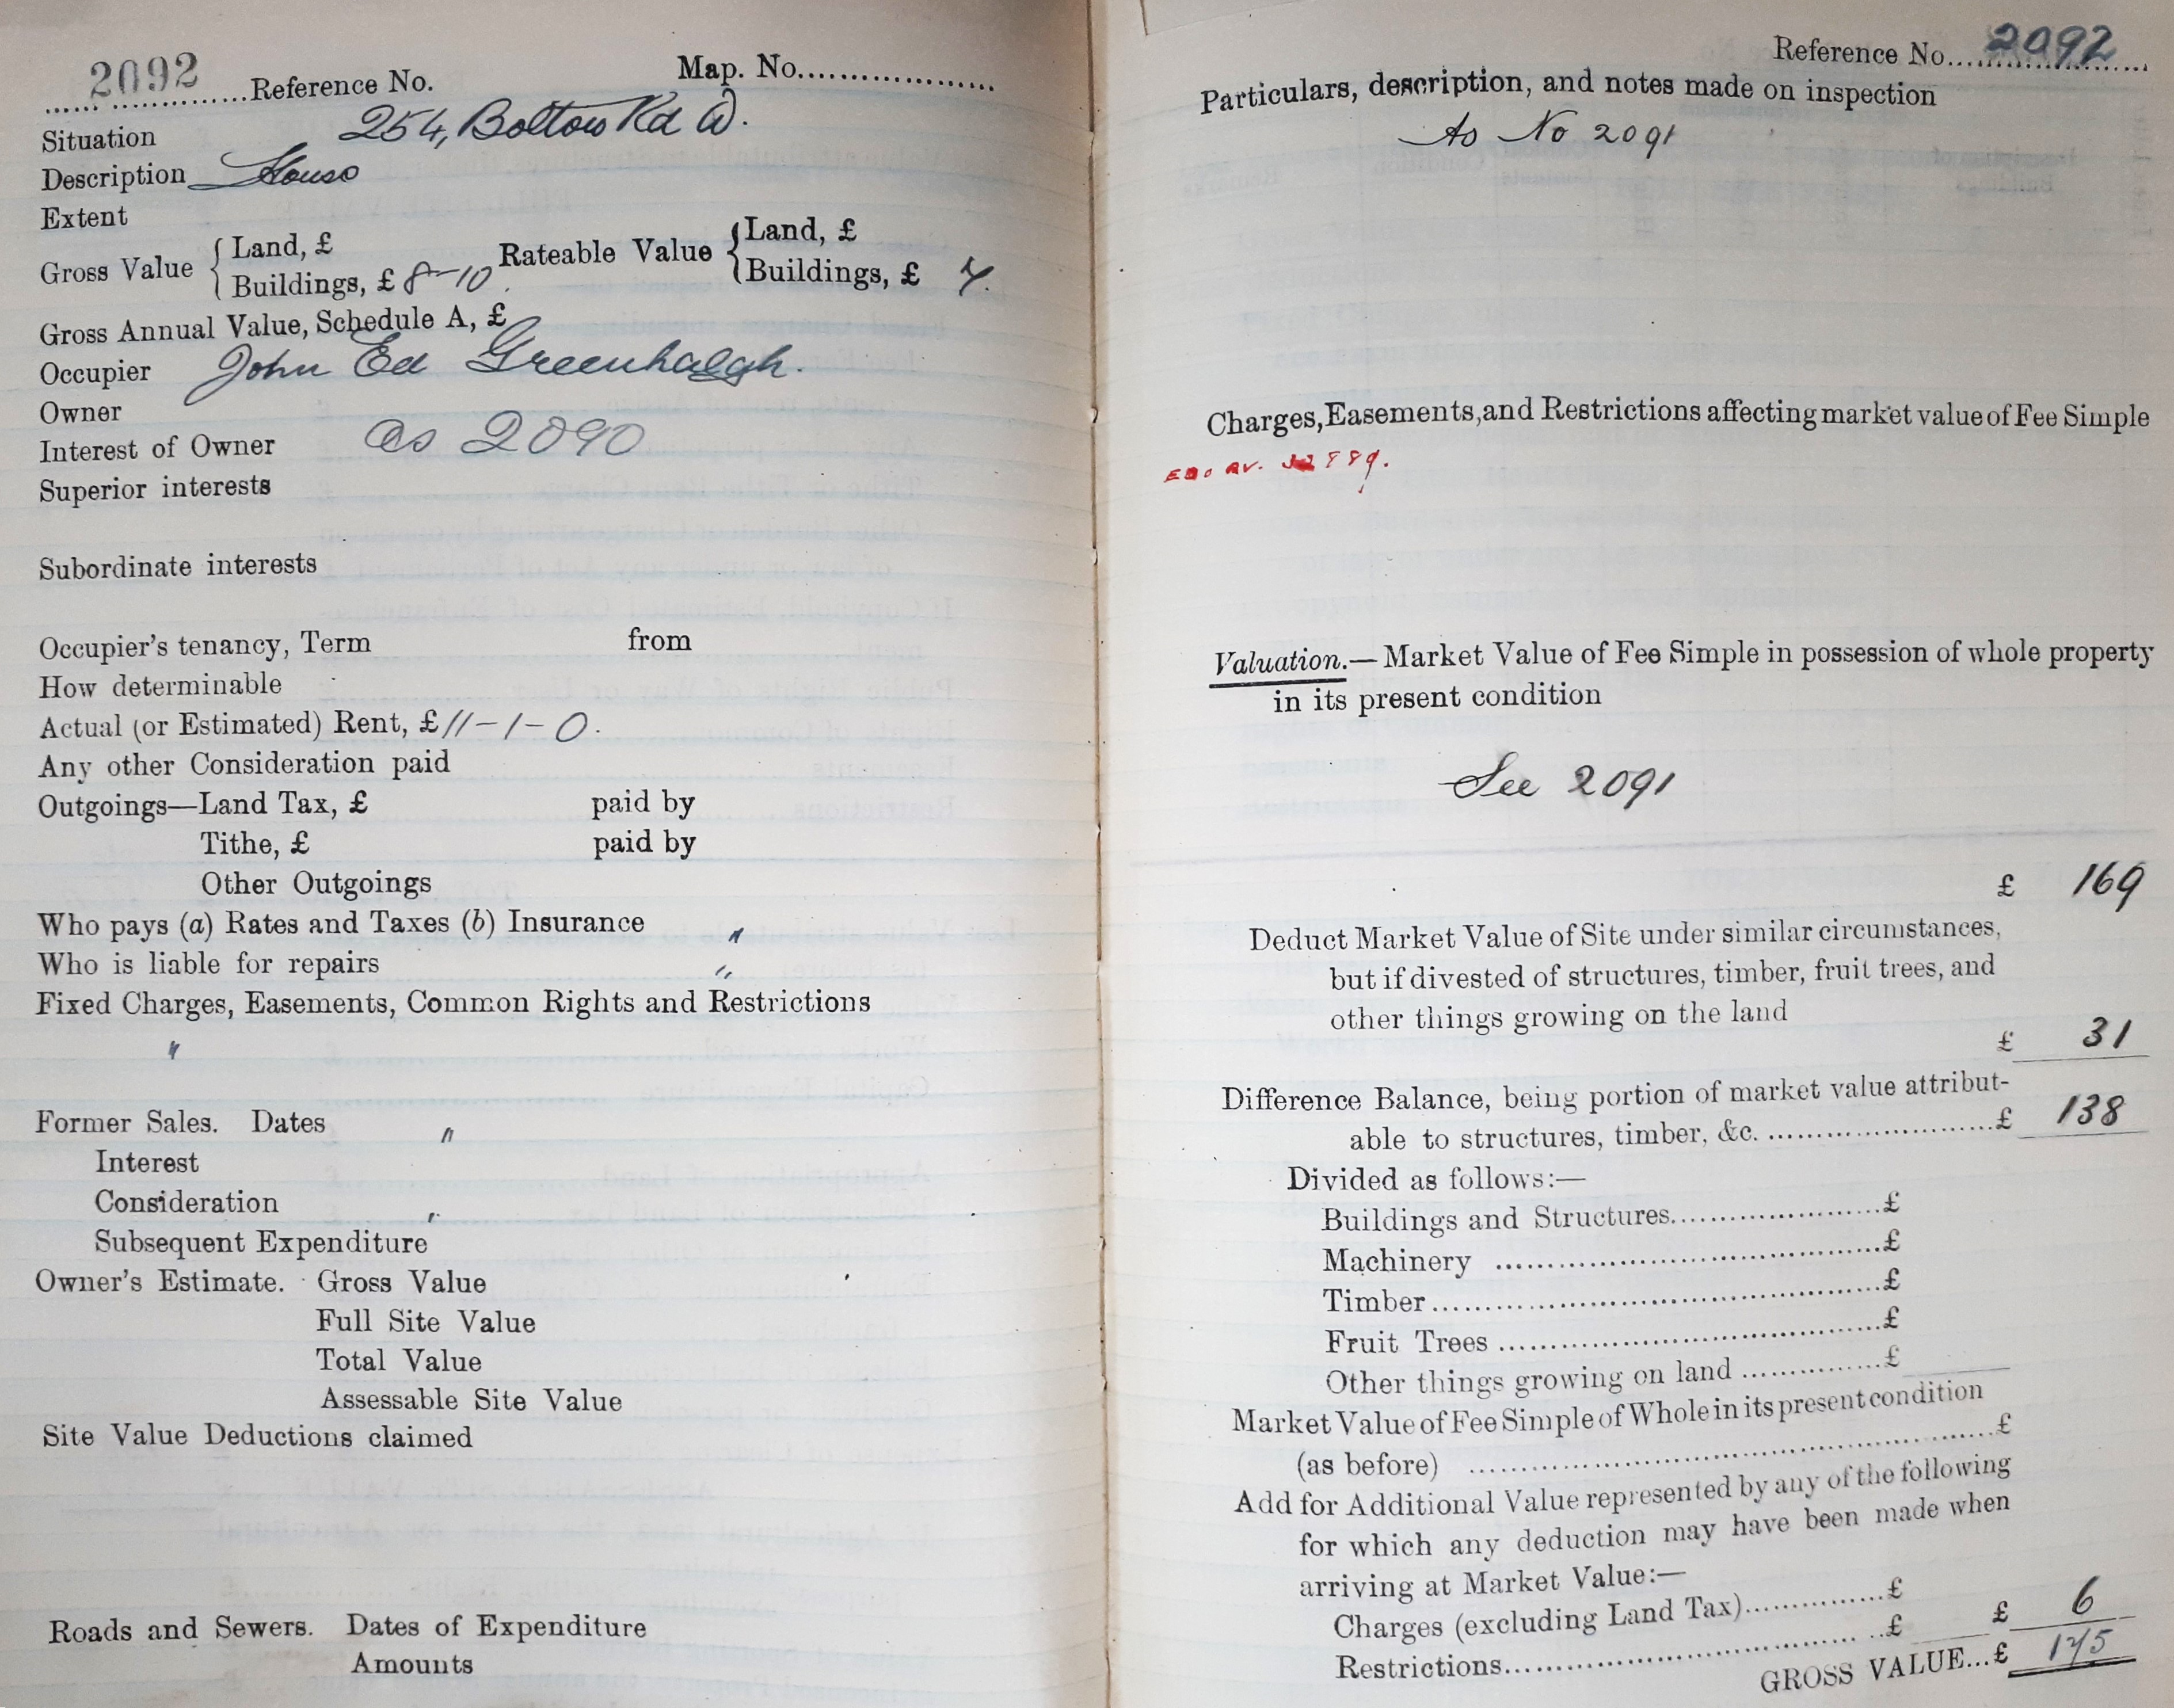 2092 Reference No. Map. No....................
Situation 254, Bolton Rd W.
Description House
Extent
Gross Value { Land, £ Rateable Value { Land, £
Buildings, £ 8-10. Buildings, £ 7.
Gross Annual Value, Schedule A, £
Occupier John Ed Greenhalgh.
Owner
Interest of Owner as 2090
Superior interests
Subordinate interests
Occupier's tenancy, Term from
How determinable
Actual (or Estimated) Rent, £ 11-1-0.
Any other Consideration paid
Outgoings—Land Tax, £ paid by
Tithe, £ paid by
Other Outgoings
Who pays (a) Rates and Taxes (b) Insurance "
Who is liable for repairs "
Fixed Charges, Easements, Common Rights and Restrictions
"
Former Sales. Dates "
Interest
Consideration "
Subsequent Expenditure
Owner's Estimate. Gross Value
Full Site Value
Total Value
Assessable Site Value
Site Value Deductions claimed
Roads and Sewers. Dates of Expenditure
Amounts
Reference No. 2092
Particulars, description, and notes made on inspection
As No 2091
Charges, Easements, and Restrictions affecting market value of Fee Simple
Valuation.— Market Value of Fee Simple in possession of whole property
in its present condition
See 2091
£ 169
Deduct Market Value of Site under similar circumstances,
but if divested of structures, timber, fruit trees, and
other things growing on the land
£ 31
Difference Balance, being portion of market value attribut-
able to structures, timber, &c. ....................£ 138
Divided as follows:—
Buildings and Structures....................£
Machinery ....................£
Timber....................£
Fruit Trees ....................£
Other things growing on land ....................£
Market Value of Fee Simple of Whole in its present condition
(as before) ....................£
Add for Additional Value represented by any of the following
for which any deduction may have been made when
arriving at Market Value:—
Charges (excluding Land Tax)....................£
Restrictions....................£ £ 6
GROSS VALUE...£ 175